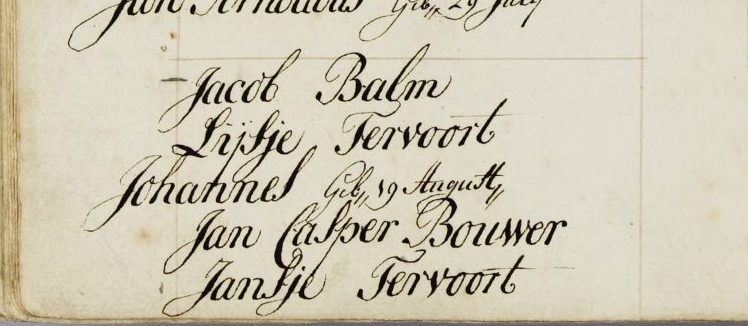 Jan Arnoldus Geb,, 29 July
Jacob Balm
Lijsje Tervoort
Johannes Geb,, 19 August,,
Jan Casper Bouwer
Jansje Tervoort